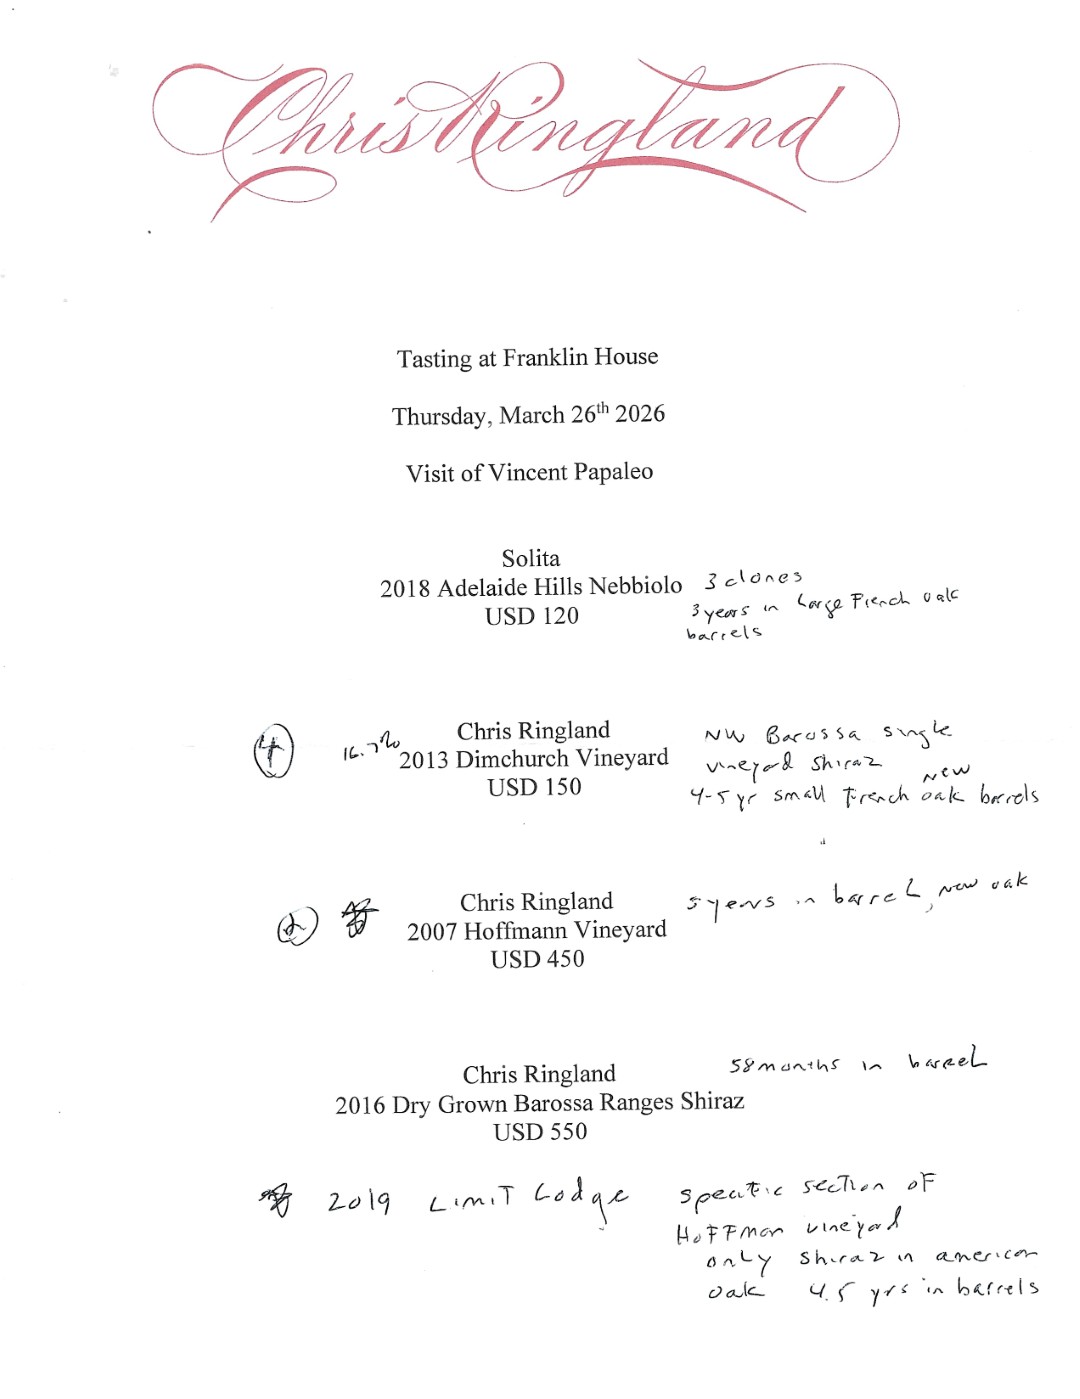 Chris Ringland
Tasting at Franklin House
Thursday, March 26th 2026
Visit of Vincent Papaleo
Solita
2018 Adelaide Hills Nebbiolo
USD 120
3 clones
3 years in Large French oak
barrels
Chris Ringland
4 16.7% 2013 Dimchurch Vineyard
USD 150
NW Barossa single
vineyard shiraz
new
4-5 yr small French oak barrels
Chris Ringland
2 2007 Hoffmann Vineyard
USD 450
5 years in barrel, new oak
58 months in barrel
Chris Ringland
2016 Dry Grown Barossa Ranges Shiraz
USD 550
2019 Limit Lodge
specific section of
Hoffman vineyard
only shiraz in american
oak 4.5 yrs in barrels